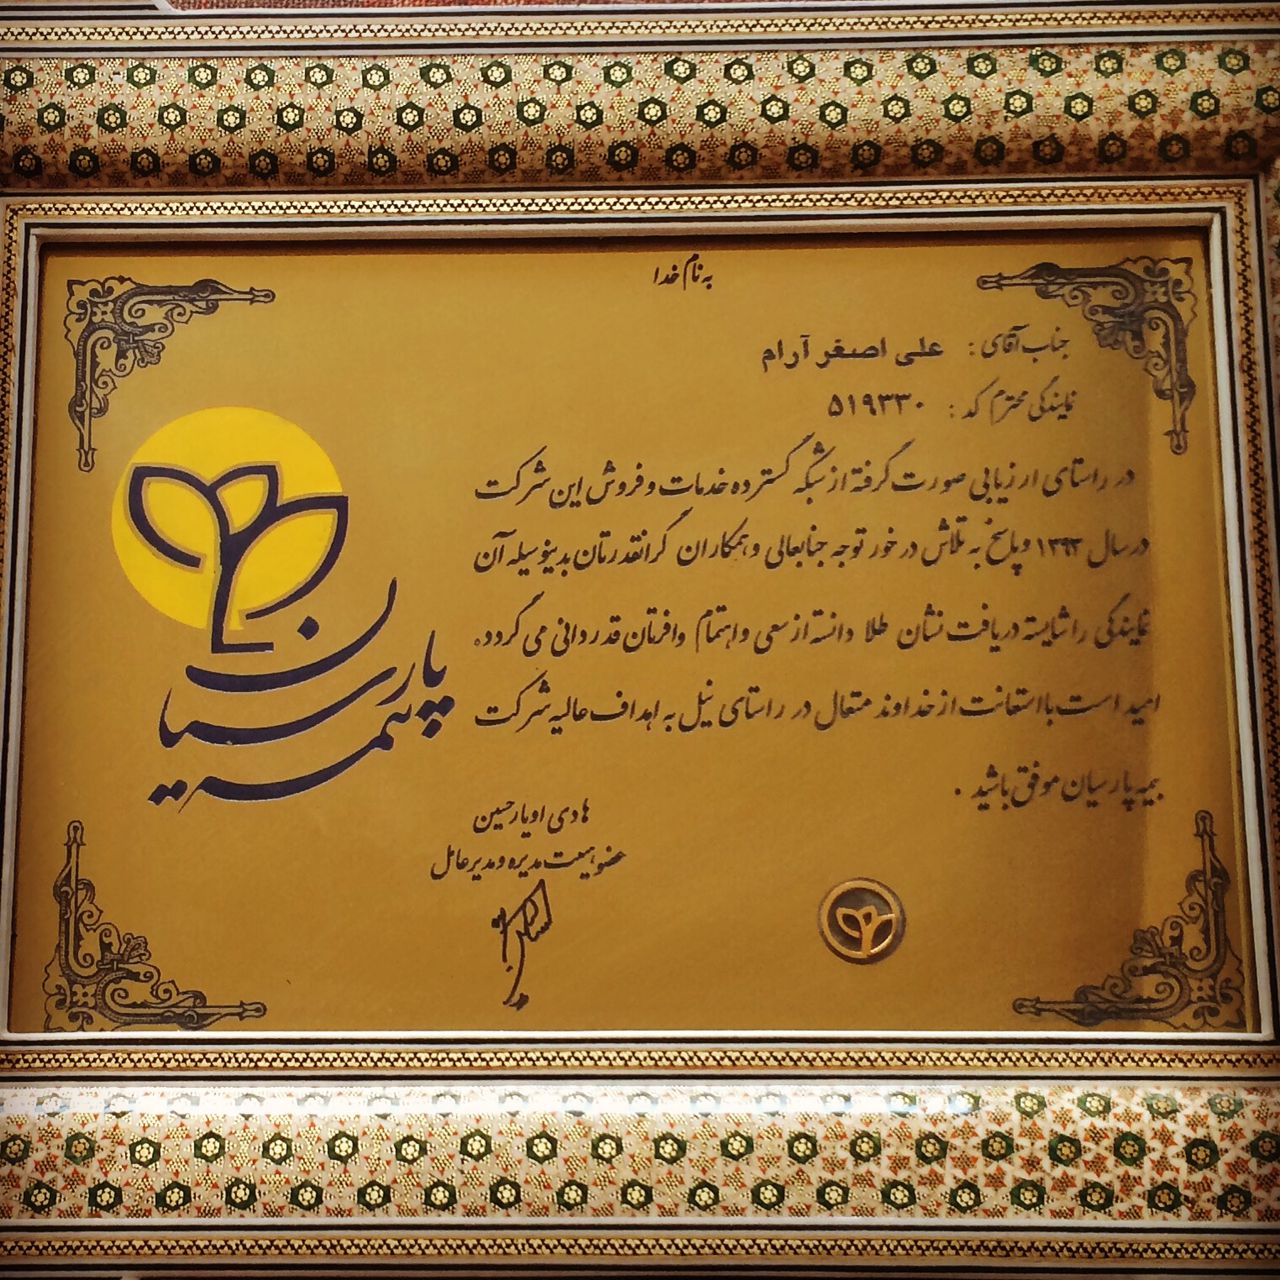 به نام خدا
جناب آقای : علی اصغر آرام
نمایندگی محترم کد : ۵۱۹۳۳۰
در راستای ارزیابی صورت گرفته از شبکه گسترده خدمات و فروش این شرکت
در سال ۱۳۹۳ و پاسخ به تلاش در خور توجه جنابعالی و همکاران گرانقدرتان بدینوسیله آن
نمایندگی را شایسته دریافت نشان طلا دانسته از سعی و اهتمام وافرتان قدردانی می گردد.
امید است با استعانت از خداوند متعال در راستای نیل به اهداف عالیه شرکت
بیمه پارسیان موفق باشید .
بیمه پارسیان
هادی اویارحسین
عضو هیئت مدیره و مدیرعامل